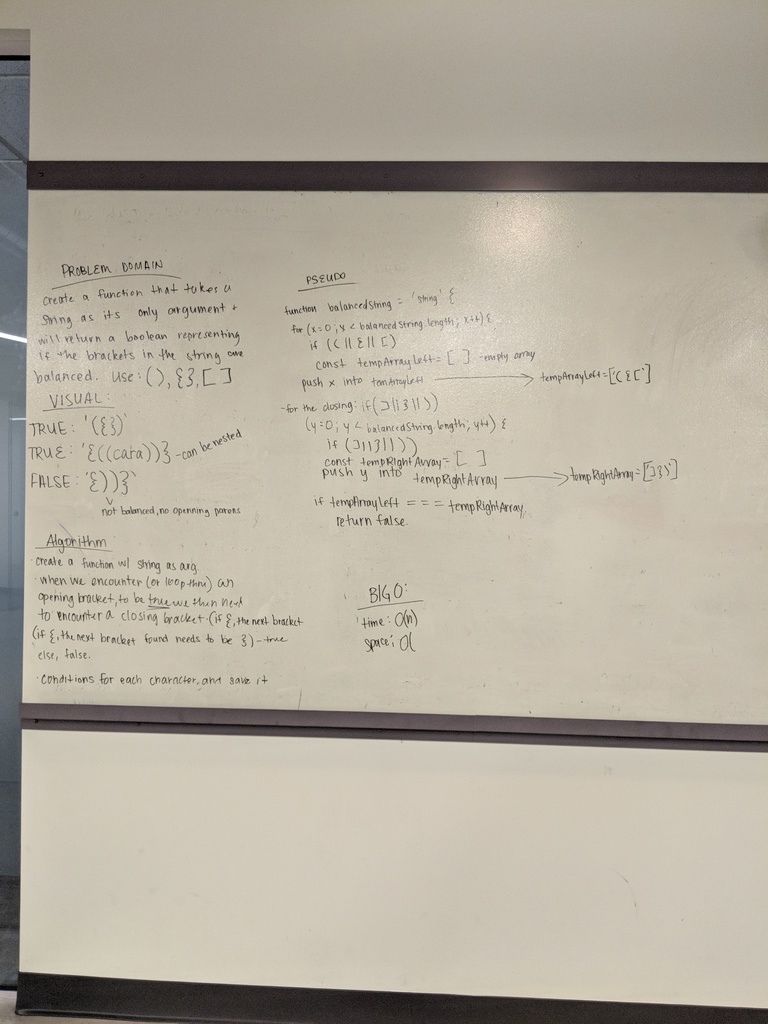 PROBLEM DOMAIN
create a function that takes a
string as its only argument +
will return a boolean representing
if the brackets in the string are
balanced. use: (), {}, []
VISUAL:
TRUE: '({})'
TRUE: '{((cata))} - can be nested
FALSE: '{))}'
not balanced, no openning parens
Algorithm
· create a function w/ string as arg
· when we encounter (or loop thru) an
opening bracket, to be true we then need
to encounter a closing bracket. (if {, the next bracket
(if {, the next bracket found needs to be }) - true
else, false.
· conditions for each character, and save it
PSEUDO
function balancedString = 'string' {
for (x=0; x < balancedString.length; x++) {
if (( || { || [)
const tempArrayLeft = [ ] - empty array
push x into tempArrayLeft → tempArrayLeft=['({[']
- for the closing: if (] || } || ))
(y=0; y < balancedString.length; y++) {
if (] || } || ))
const tempRightArray = [ ]
push y into tempRightArray → tempRightArray = []})']
if tempArrayLeft === tempRightArray,
return false.
BIG O:
time: O(n)
space: O(